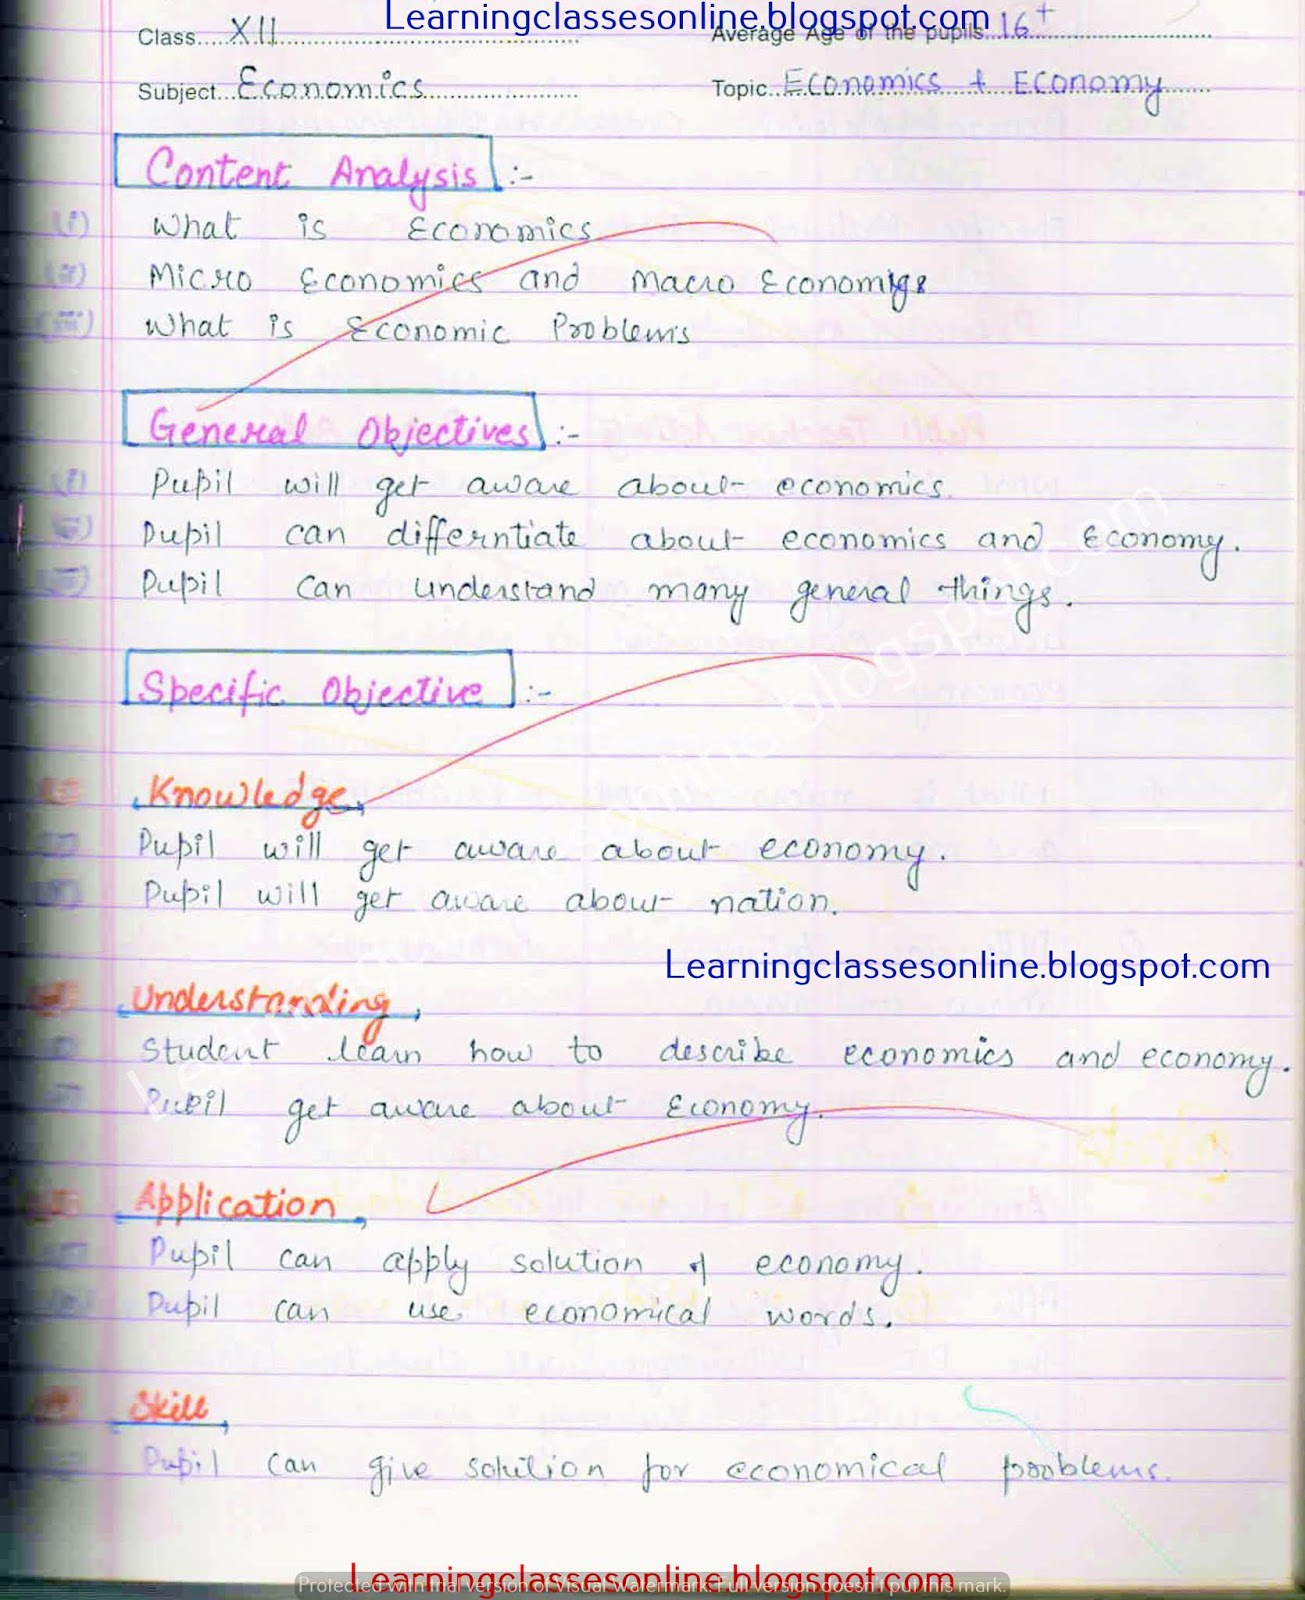 Learningclassesonline.blogspot.com
Class....XII.... Average Age of the pupils 16+
Subject...Economics... Topic...Economics + Economy
Content Analysis :-
(i) What is Economics
(ii) Micro Economics and Macro Economics
(iii) What is Economic Problems
General Objectives :-
(i) Pupil will get aware about economics.
(ii) Pupil can differntiate about economics and Economy.
(iii) Pupil can understand many general things.
Specific Objective :-
Knowledge
Pupil will get aware about economy.
Pupil will get aware about nation.
Learningclassesonline.blogspot.com
Understanding
Student learn how to describe economics and economy.
Pupil get aware about Economy.
Application
Pupil can apply solution of economy.
Pupil can use economical words.
Skill
Pupil can give solution for economical problems.
Learningclassesonline.blogspot.com
Protected with trial version of Visual Watermark. Full version doesn't put this mark.